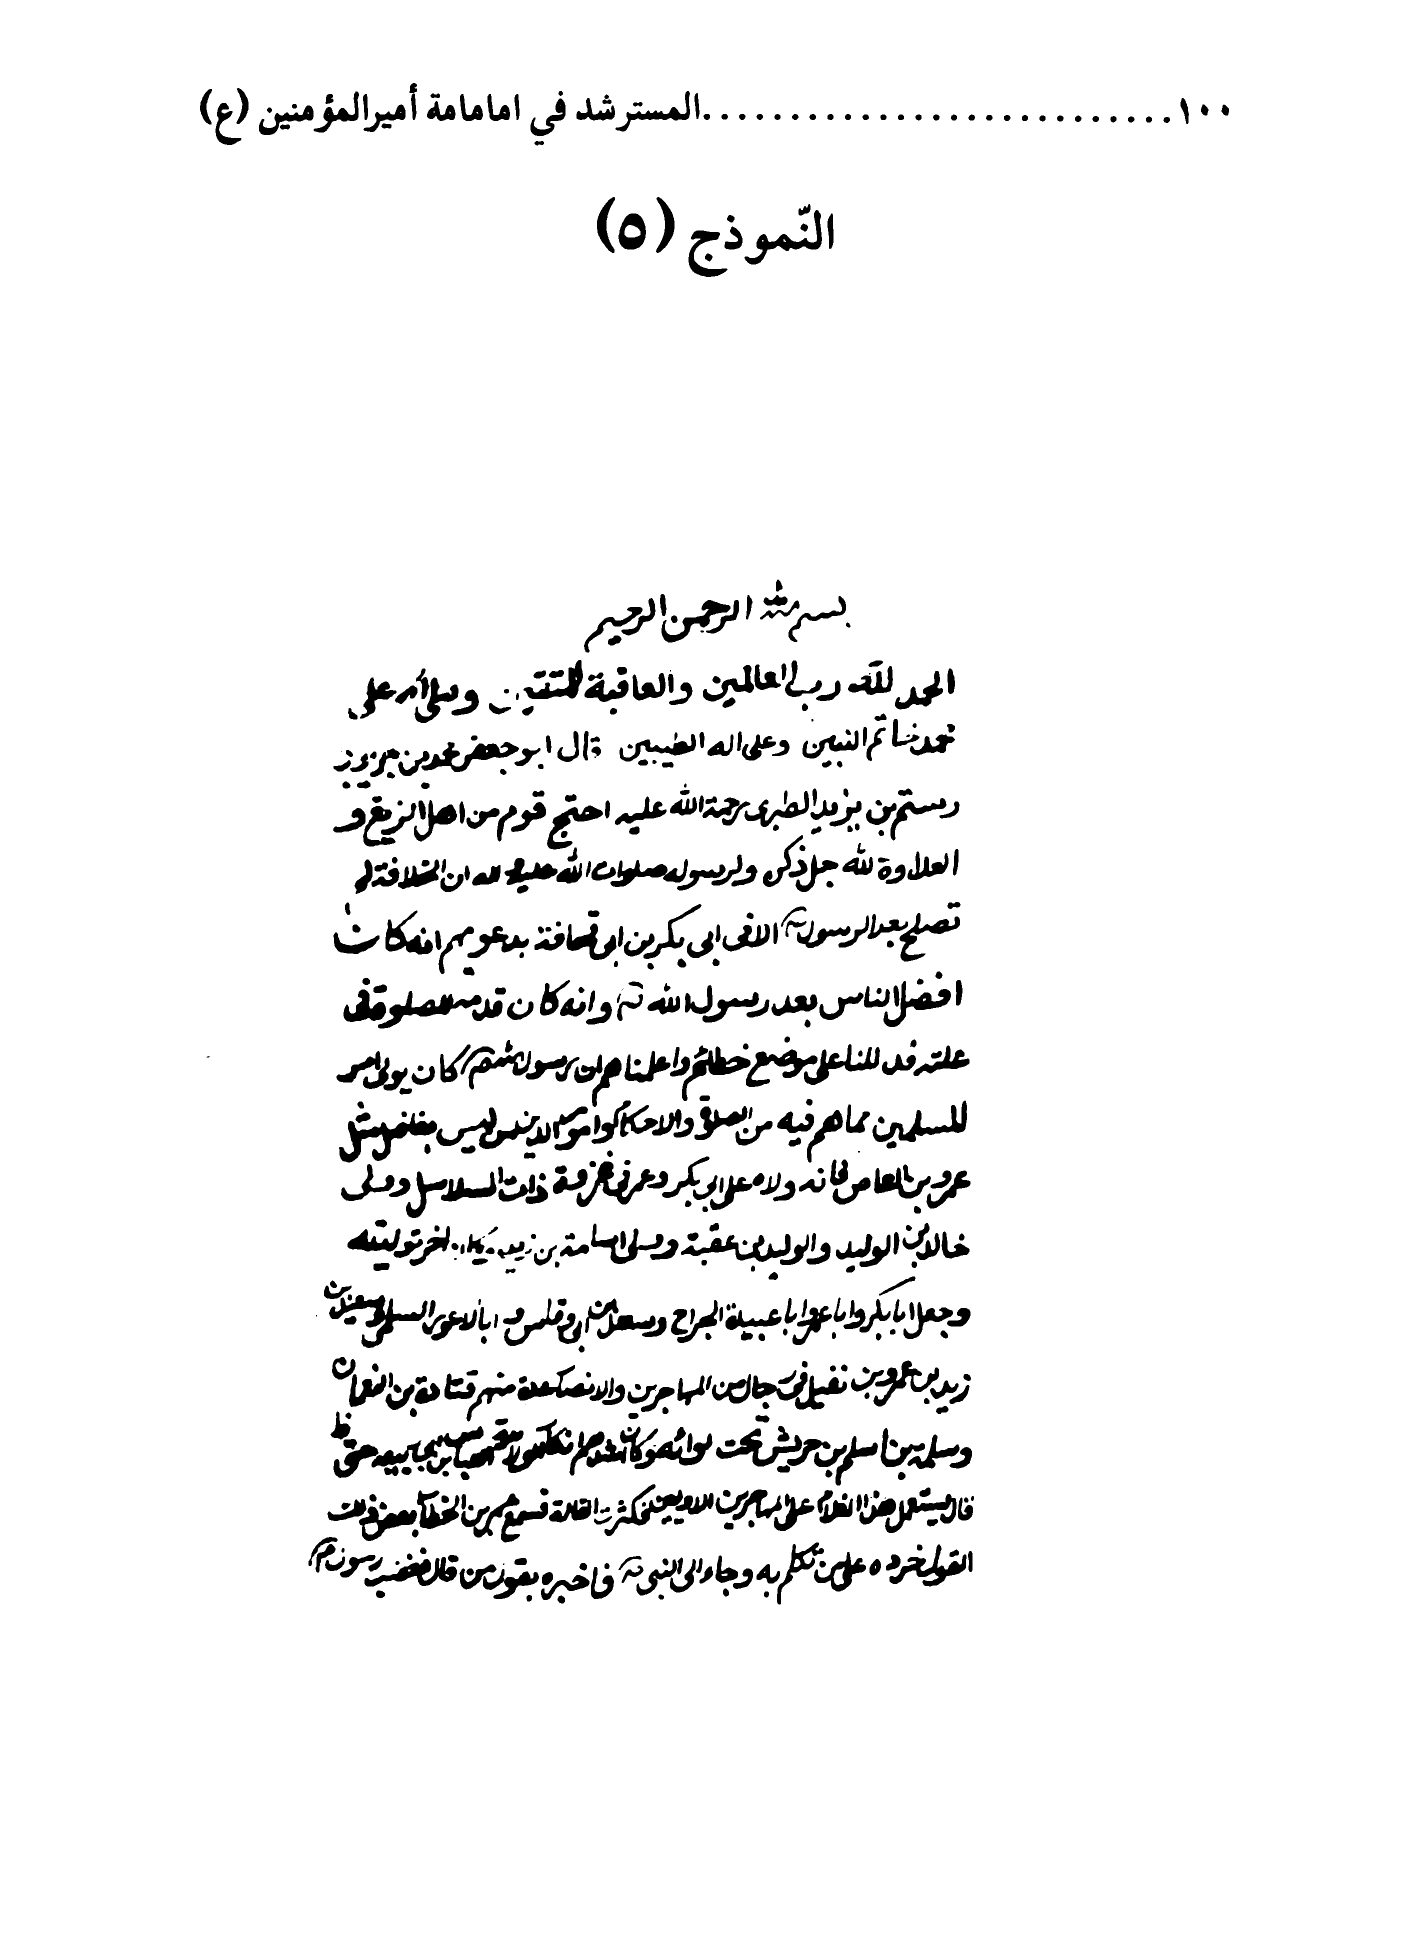 ١٠٠..........................المسترشد في امامامة أميرالمؤمنين (ع)
النّموذج (٥)
بسم الله الرحمن الرحيم
الحمد لله رب العالمين والعاقبة للمتقين وصلى الله على
محمد خاتم النبيين وعلى اله الطيبين قال ابو جعفر محمد بن جرير بن
رستم بن يزيد الطبرى رحمة الله عليه احتج قوم من اهل الزيغ و
العداوة لله جل ذكره ولرسوله صلوات الله عليه واله ان الخلافة لم
تصلح بعد الرسول الا فى ابى بكر بن ابى قحافة بدعويهم انه كان
افضل الناس بعد رسول الله وانه كان قدمه للصلوة فى
علته فدللنا على موضع خطائهم واعلمناهم ان رسول الله كان يولى امر
المسلمين مما هم فيه من الصلوة والاحكام وامور الدين من ليس بفاضل مثل
عمرو بن العاص فانه ولاه على ابى بكر وعمر فى غزوة ذات السلاسل وولى
خالد بن الوليد والوليد بن عقبة وولى اسامة بن زيد اخر توليته
وجعل ابا بكر وابا عمر وابا عبيدة الجراح وسعد بن ابى وقاص و ابا الاعور السلمى وسعيد بن
زيد بن عمرو بن نفيل فى رجال من المهاجرين والانصار عدة منهم قتادة بن النعمان
وسلمة بن اسلم بن حريش تحت لوائه وكان اشدهم
قال يستعمل هذا الغلام على المهاجرين الاولين فكثرت القالة فسمع عمر بن الخطاب بعض ذلك
القول فرده على من تكلم به وجاء الى النبى فاخبره بقول من قال فغضب رسول